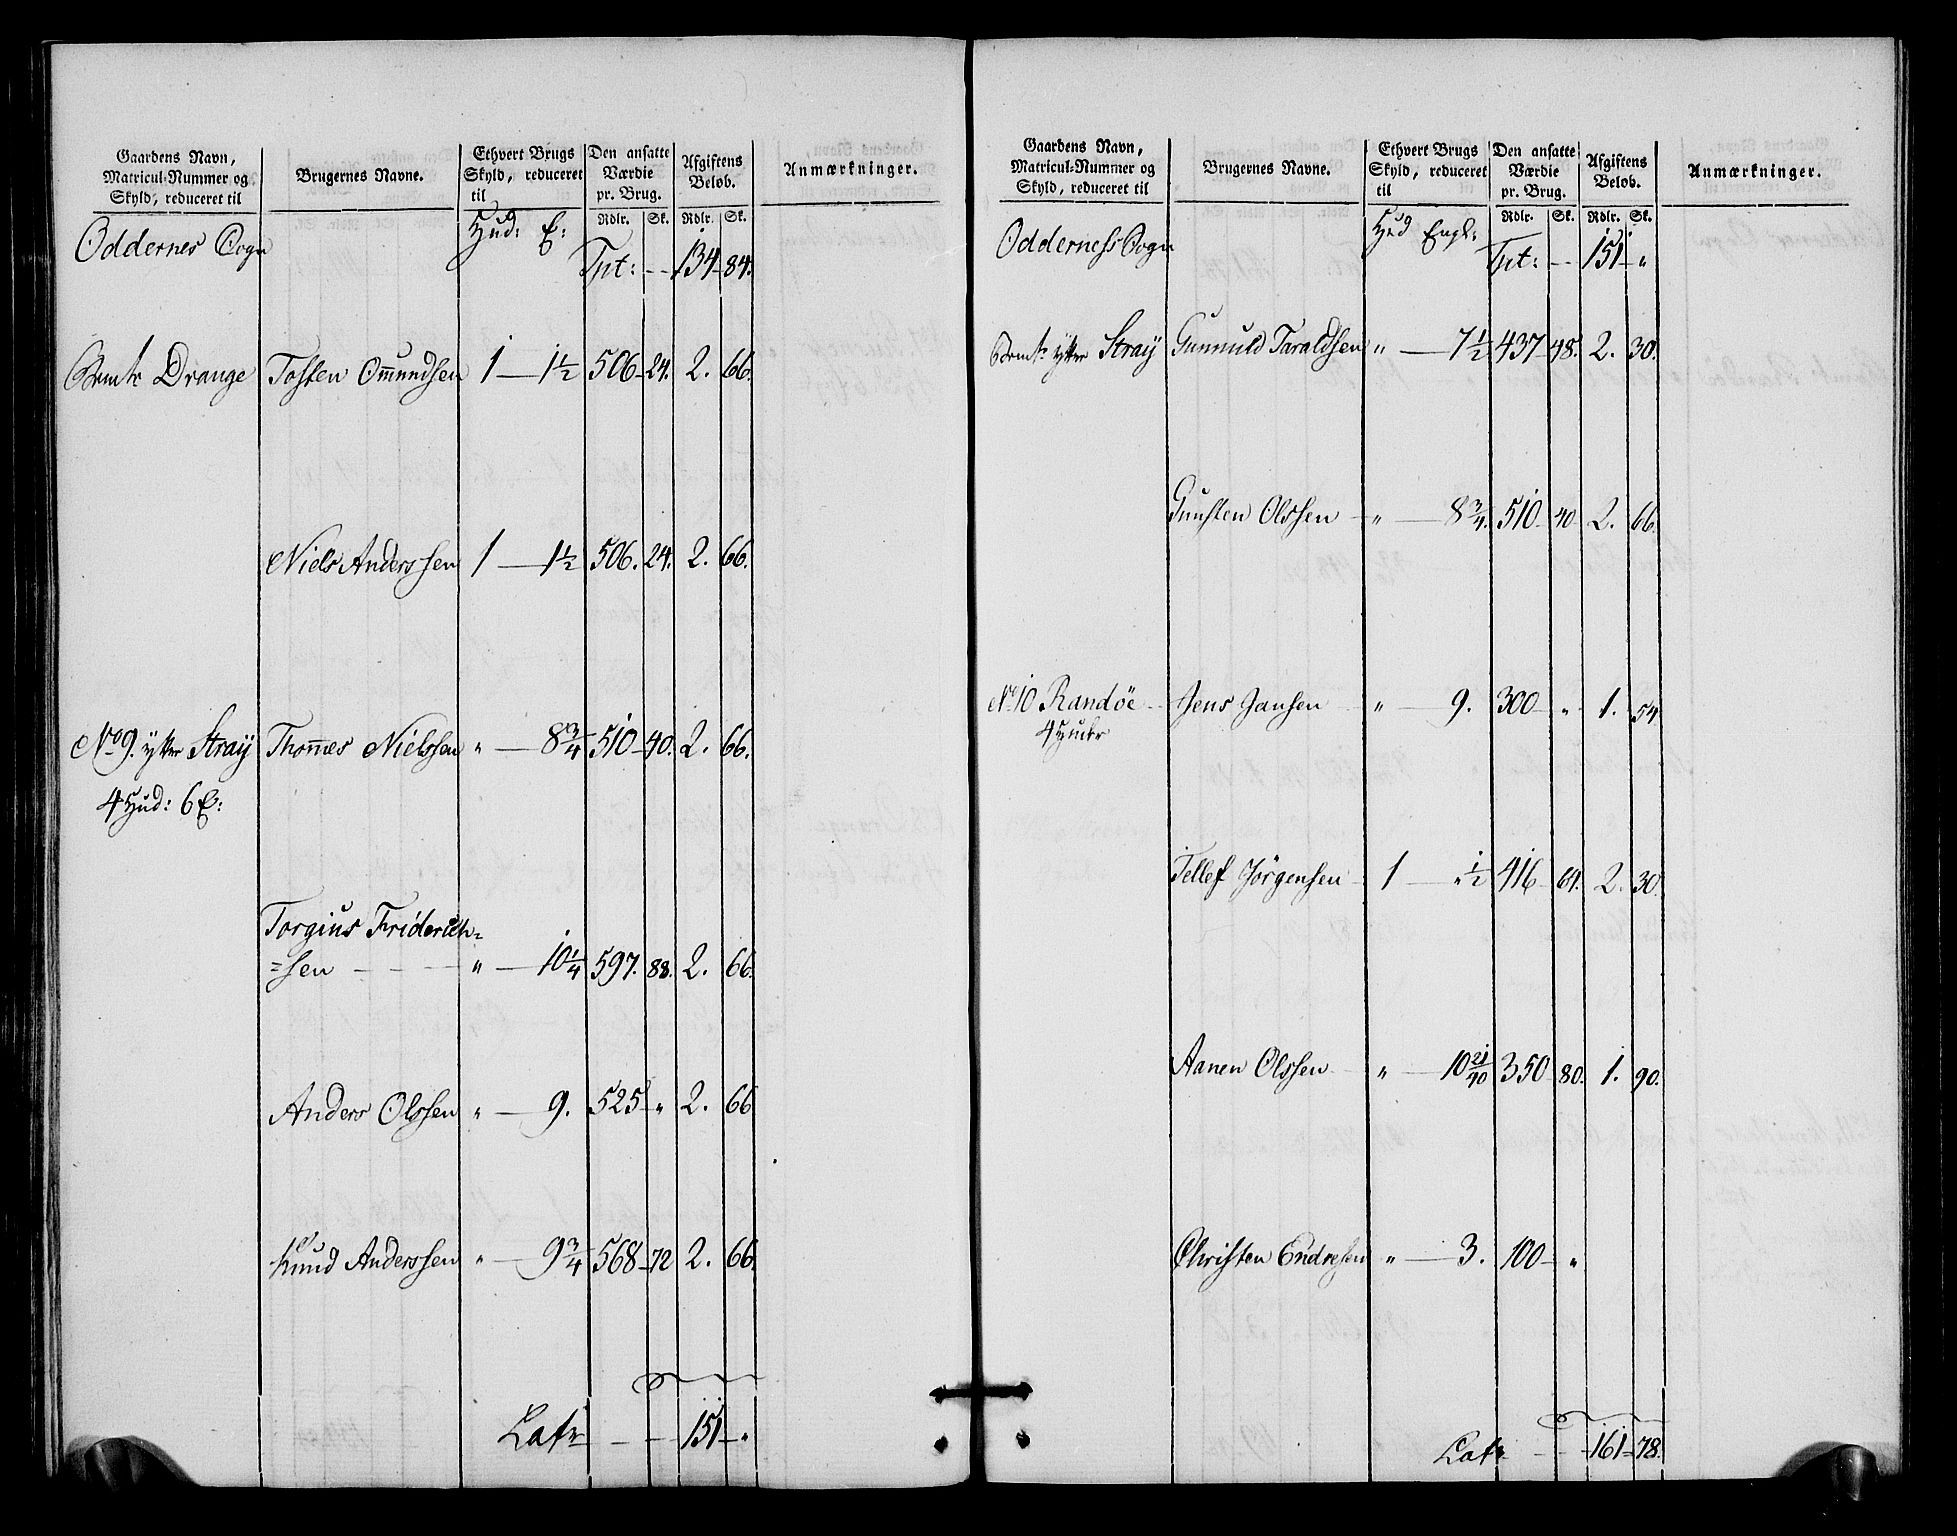 Gaardens Navn, Matricul-Nummer og Skyld, reduceret til
Brugernes Navne.
Ethvert Brugs Skyld, reduceret til
Den ansatte Værdie pr. Brug.
Afgiftens Beløb.
Anmærkninger.
Rdlr. Sk. Rdlr. Sk.
Oddernes Sogn Hud: E:
Tpt: -- 134 - 84.
Drange Tosten Omundsen 1 — 1 1/2 506 - 24. 2. 66.
Niels Anderssen 1 — 1 1/2 506. 24. 2. 66.
No 9. ytter Straij Thomes Nielssen " — 8 3/4 510 - 40. 2. 66.
4 Hud: 6 E:
Torgius Friderich=
=sen - - - " — 10 1/4 597. 88. 2. 66.
Anders Olssen " — 9. 525 - " 2. 66
Knud Anderssen " — 9 3/4 568 - 72 2. 66.
Lat. - -- 151 - "
Gaardens Navn, Matricul-Nummer og Skyld, reduceret til
Brugernes Navne.
Ethvert Brugs Skyld, reduceret til
Den ansatte Værdie pr. Brug.
Afgiftens Beløb.
Anmærkninger.
Rdlr. Sk. Rdlr. Sk.
Odderness Sogn Hud Engl:
Tpt: -- 151 - "
ytter Straij Gunnuld Taraldsen " — 7 1/2 437 - 48. 2. 30.
Gunsten Olssen - " — 8 3/4. 510 - 40 - 2. 66.
No 10 Randöe - Jens Jansen " — 9. 300 - " - 1. 54
4 Huder
Tellef Jörgensen - 1 — " 1/2 416 - 64. 2. 30.
Aanen Olssen - " — 10 21/40 350 80. 1. 90.
Christen Endresen " — 3. 100 - "
Lat. - - 161 - 78.